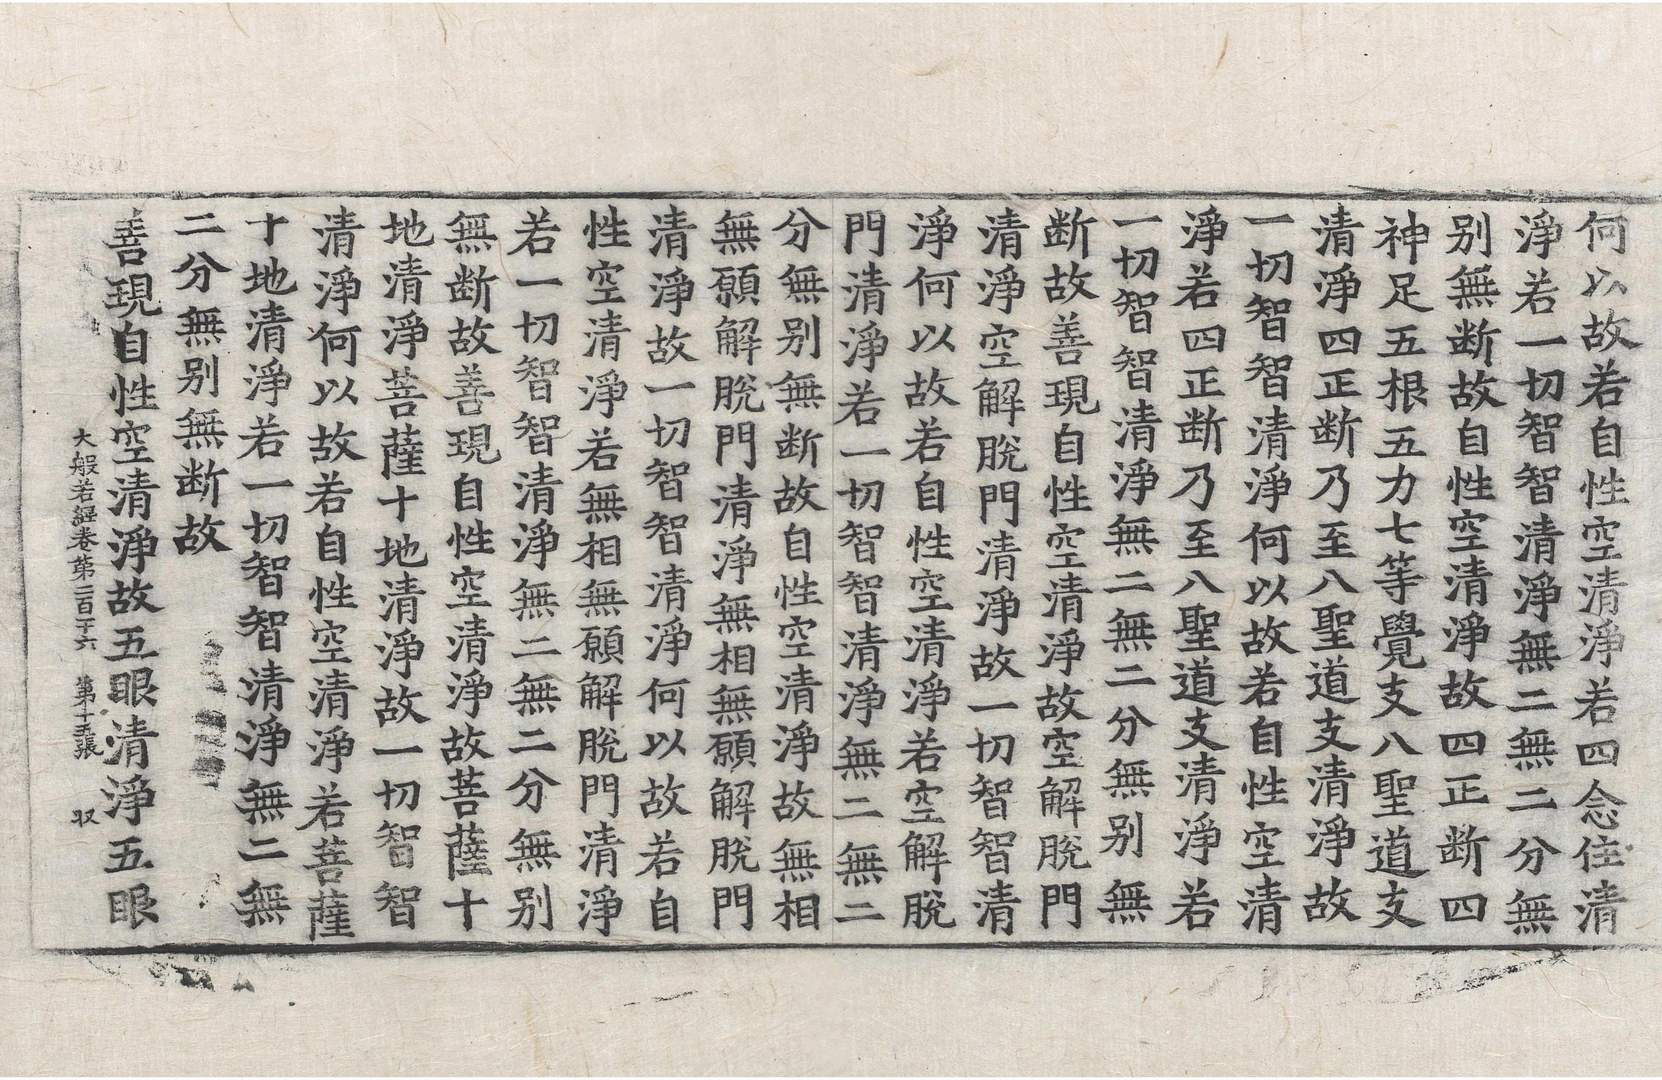 何以故若自性空清淨若四念住清
淨若一切智智清淨無二無二分無
别無断故自性空清淨故四正断四
神足五根五力七等覺支八聖道支
清淨四正断乃至八聖道支清淨故
一切智智清淨何以故若自性空清
淨若四正断乃至八聖道支清淨若
一切智智清淨無二無二分無别無
断故善現自性空清淨故空解脫門
清淨空解脫門清淨故一切智智清
淨何以故若自性空清淨若空解脫
門清淨若一切智智清淨無二無二
分無别無断故自性空清淨故無相
無願解脫門清淨無相無願解脫門
清淨故一切智智清淨何以故若自
性空清淨若無相無願解脫門清淨
若一切智智清淨無二無二分無别
無断故善現自性空清淨故菩薩十
地清淨菩薩十地清淨故一切智智
清淨何以故若自性空清淨若菩薩
十地清淨若一切智智清淨無二無
二分無别無断故
善現自性空清淨故五眼清淨五眼
大般若經卷第二百一十六 第十五張